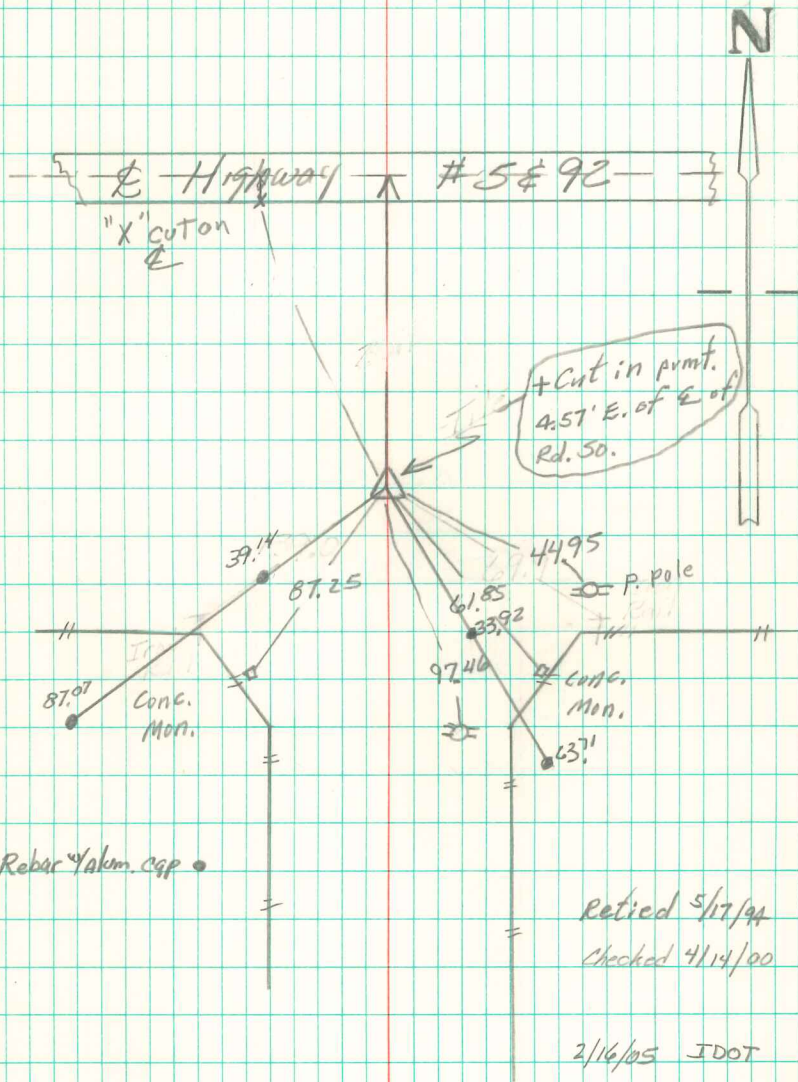 N
℄ Highway #5 & 92
"X" cut on
℄
+ Cut in pvmt.
4.57' E. of ℄ of
Rd. So.
39.14
87.25
44.95
P. pole
61.85
33.92
97.46
87.07
Conc.
Mon.
Conc.
Mon.
63.71
Rebar w/Alum. cap
Retied 5/17/94
Checked 4/14/00
2/16/05 IDOT